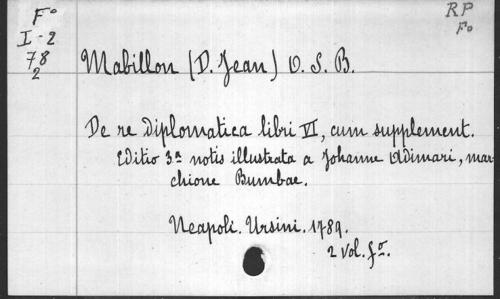 F° RP
I-2 F°
78
2
Mabillon (D. Jean) O. S. B.
De re diplomatica libri VI, cum supplement.
Editio 3ª notis illustrata a Johanne Adimari, mar
chione Bumbae.
Neapoli. Ursini. 1789.
2 vol. f°.